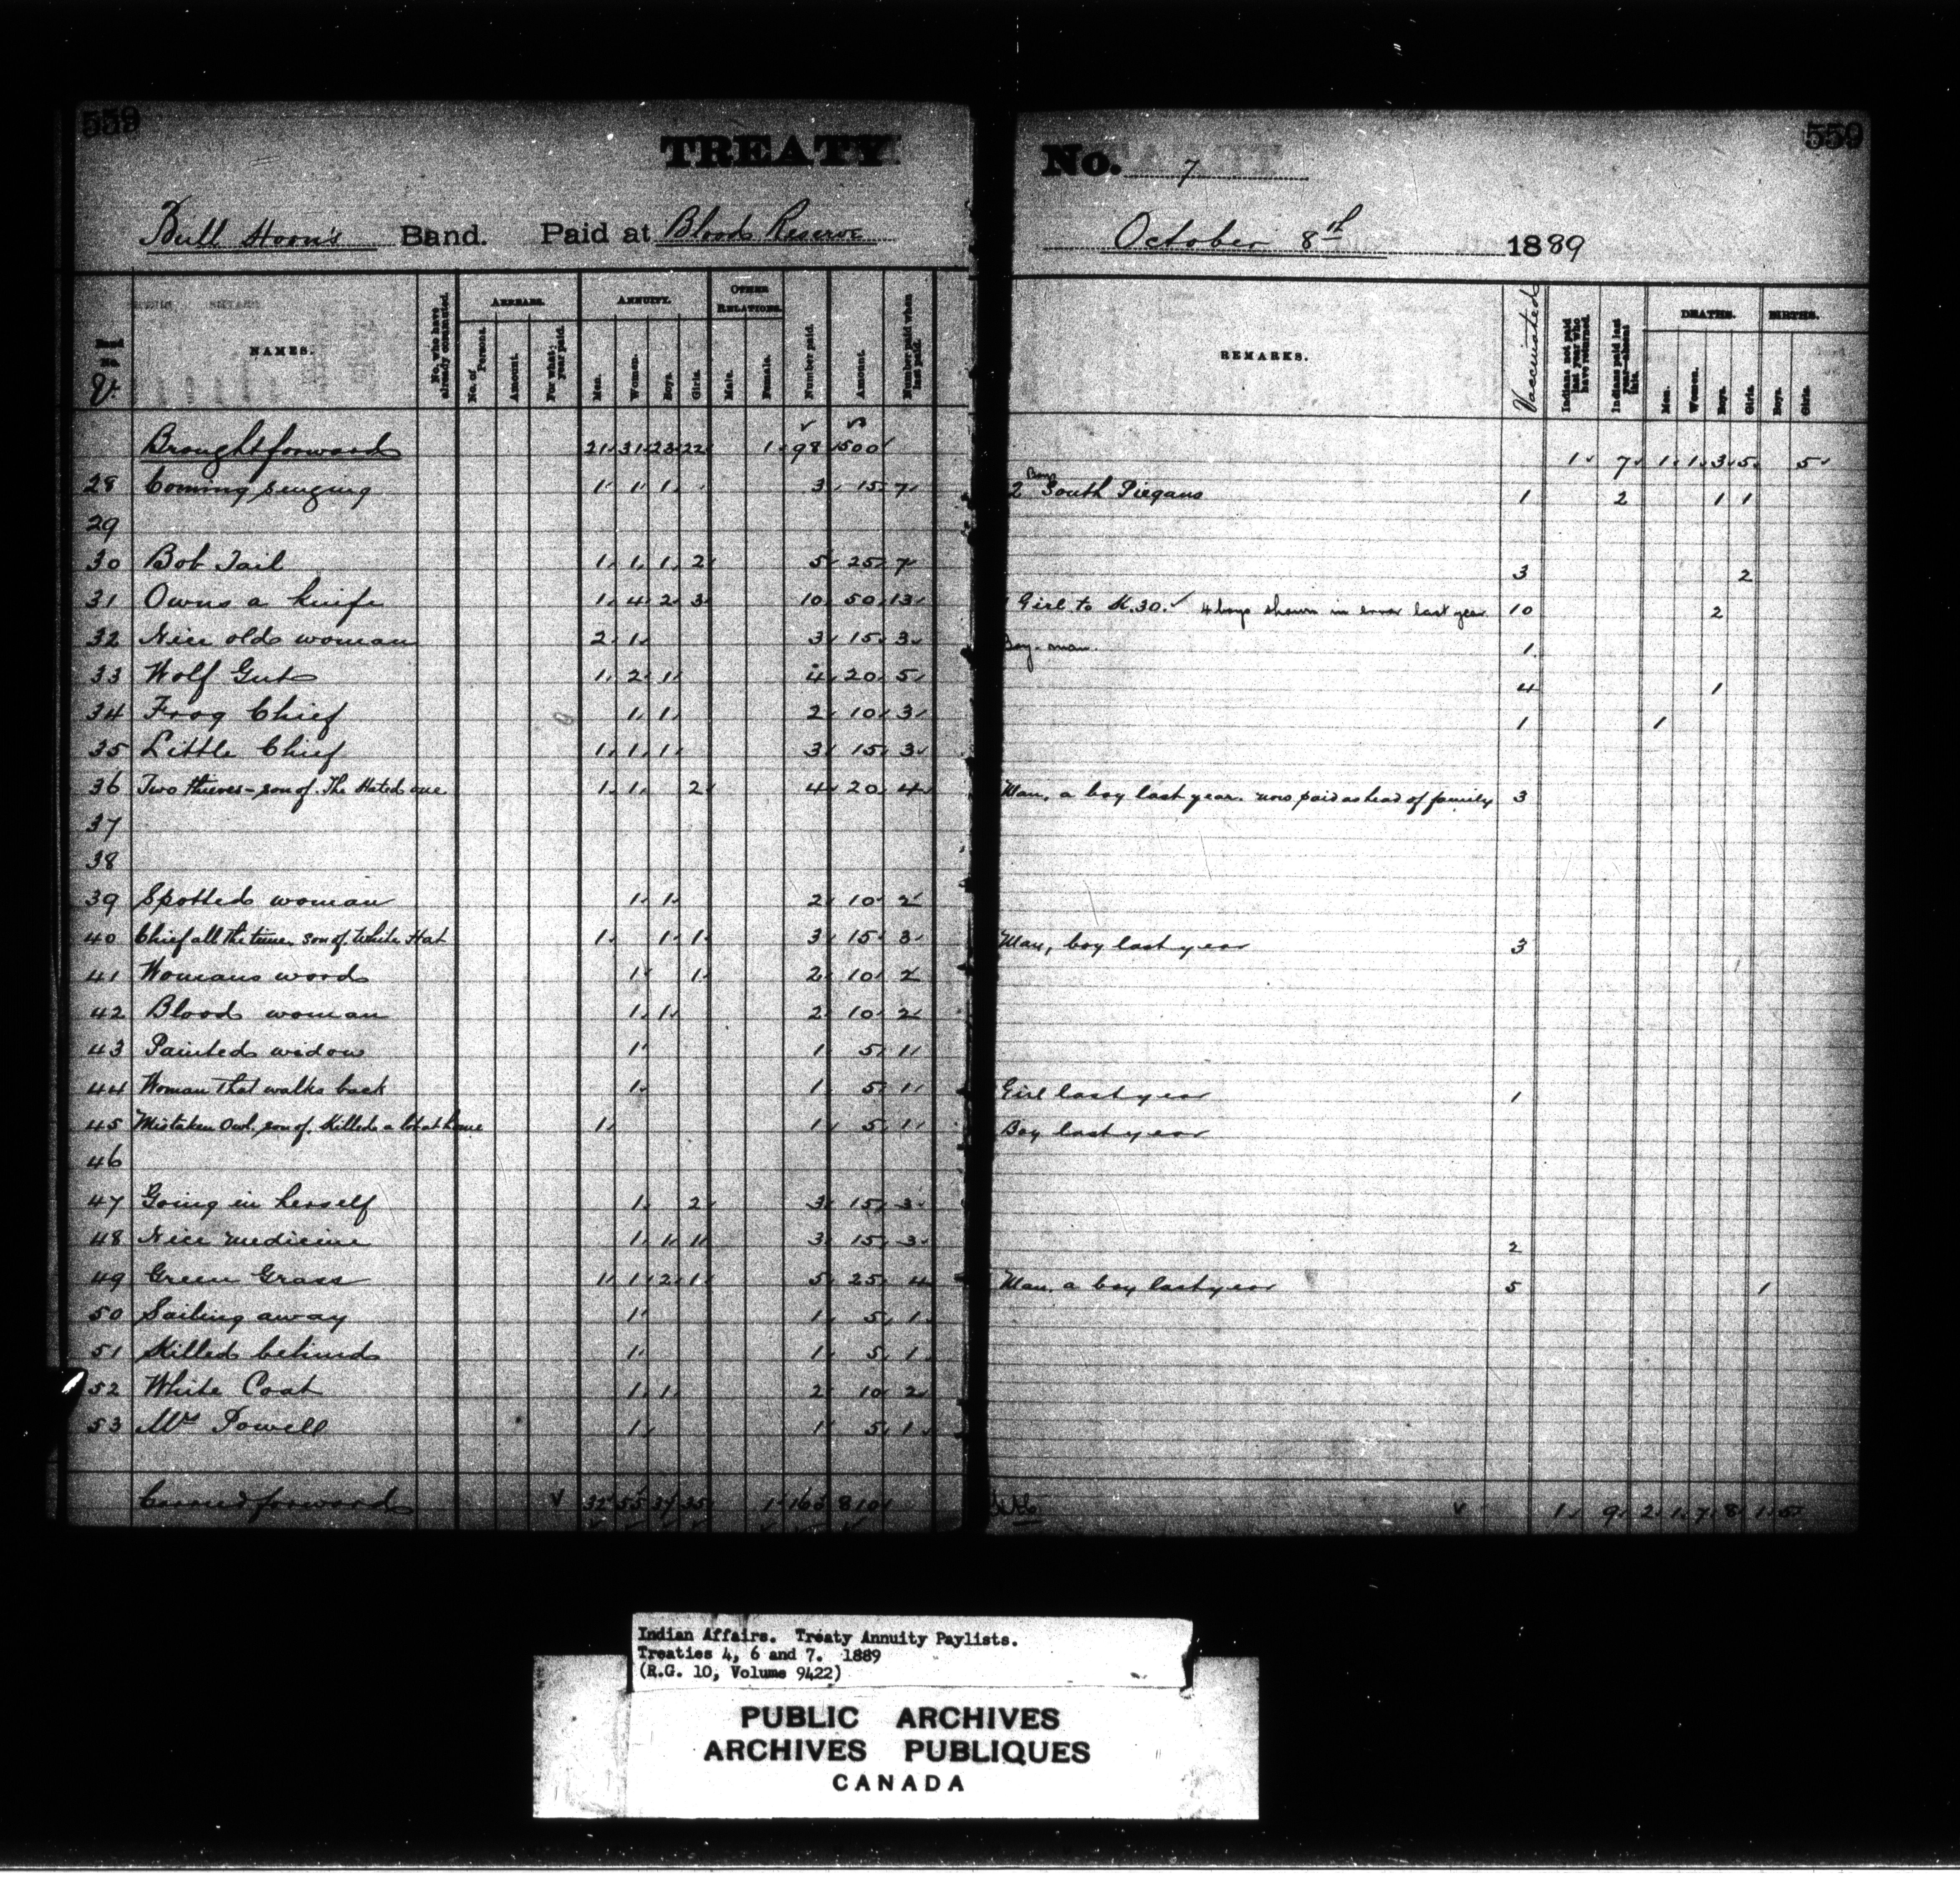 559
559
TREATY
No. 7
Bull Horn's Band. Paid at Blood Reserve
October 8th 1889
Band No. V.
NAMES.
No. who have already commuted.
ARREARS.
No. of Persons.
Amount.
For what year paid.
ANNUITY.
Men.
Women.
Boys.
Girls.
OTHER RELATIONS.
Male.
Female.
Number paid.
Amount.
Number paid when last paid.
REMARKS.
Vaccinated
Indians not paid last year who have returned.
Indians paid last year absent this.
DEATHS.
Men.
Women.
Boys.
Girls.
BIRTHS.
Boys.
Girls.
Brought forward 21 31 23 22 1 98 1500 1 7 1 1 3 5 5
28 Coming singing 1 1 1 3 15 7 2 Boys South Piegans 1 2 1 1
29
30 Bob Tail 1 1 1 2 5 25 7 3 2
31 Owns a knife 1 4 2 3 10 50 13 1 Girl to K.30. 4 boys shown in error last year 10 2
32 Nice old woman 2 1 3 15 3 Boy-man. 1
33 Wolf Gut 1 2 1 4 20 5 4 1
34 Frog Chief 1 1 2 10 3 1 1
35 Little Chief 1 1 1 3 15 3
36 Two thieves - son of. The Hated one 1 1 2 4 20 4 Man, a boy last year. now paid as head of family 3
37
38
39 Spotted woman 1 1 2 10 2
40 Chief all the time, son of. White Hat 1 1 1 3 15 3 Man, boy last year 3
41 Womans word 1 1 2 10 2
42 Blood woman 1 1 2 10 2
43 Painted widow 1 1 5 1
44 Woman that walks back 1 1 5 1 Girl last year 1
45 Mistaken Owl. son of. Killed a lot at 1 1 5 1 Boy last year
46
47 Going in herself 1 2 3 15 3
48 Nice medicine 1 1 1 3 15 3 2
49 Green Grass 1 1 2 1 5 25 4 Man, a boy last year 5 1
50 Sailing away 1 1 5 1
51 Killed behind 1 1 5 1
52 White Coat 1 1 2 10 2
53 Mrs Powell 1 1 5 1
Carried forward 32 55 37 35 1 810 1 9 2 1 7 8 1 5
Indian Affairs. Treaty Annuity Paylists.
Treaties 4, 6 and 7. 1889
(R.G. 10, Volume 9422)
PUBLIC ARCHIVES
ARCHIVES PUBLIQUES
CANADA